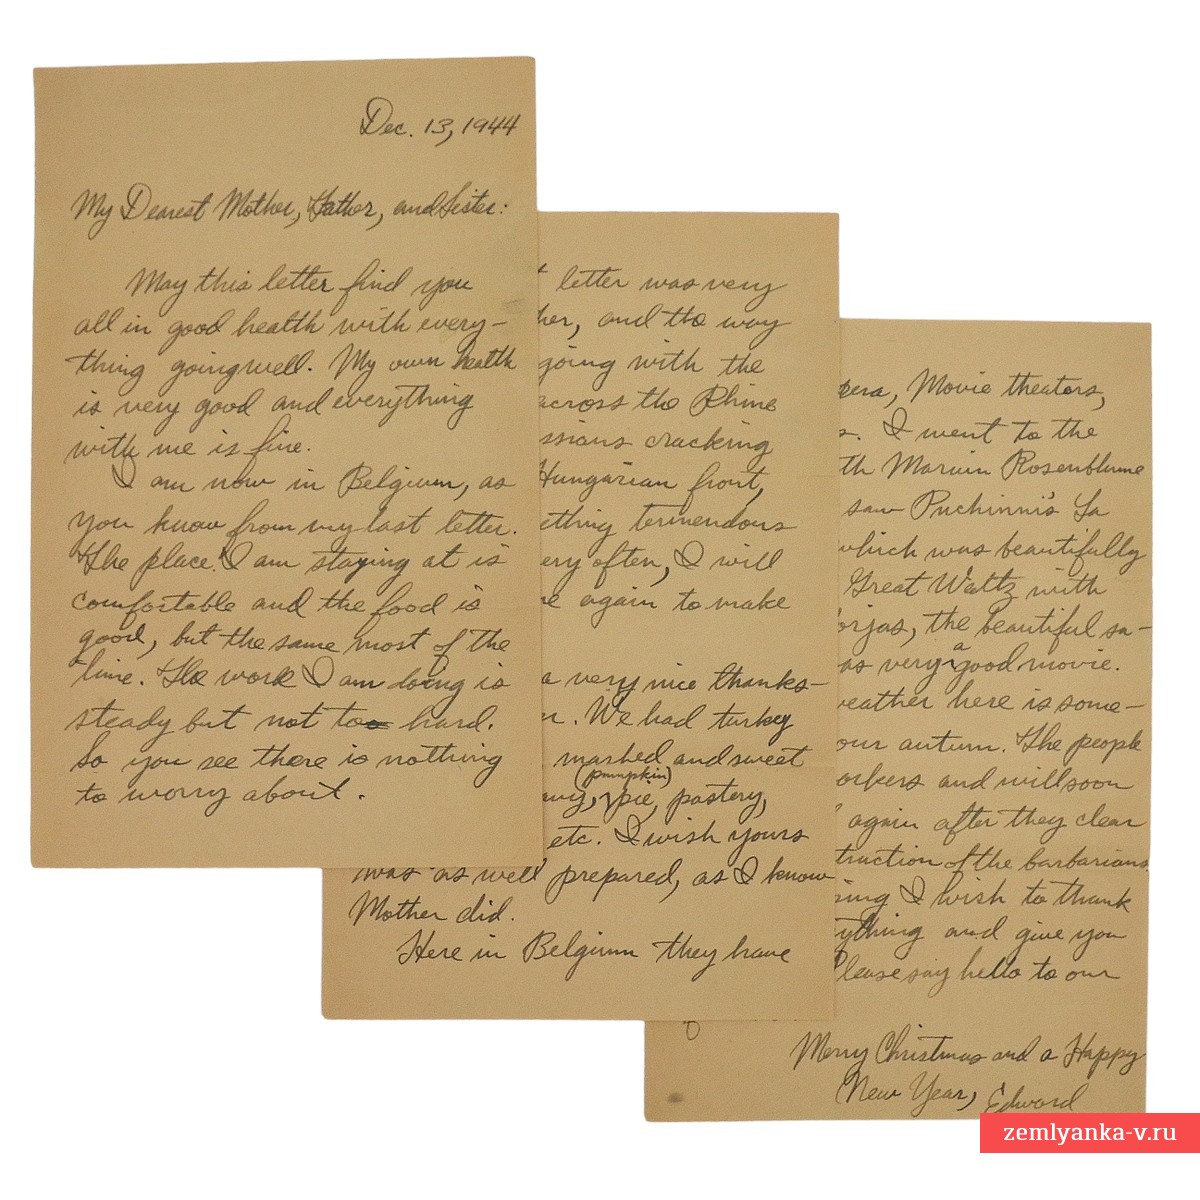 Dec. 13, 1944
My Dearest Mother, Father, and Sister:
May this letter find you
all in good health with every-
thing going well. My own health
is very good and everything
with me is fine.
I am now in Belgium, as
you know from my last letter.
The place I am staying at is
comfortable and the food is
good, but the same most of the
time. The work I am doing is
steady but not too hard.
So you see there is nothing
to worry about.
letter was very
her, and the way
going with the
across the Rhine
ssians cracking
Hungarian front,
ething tremendous
ery often, I will
e again to make
a very nice thanks-
r. We had turkey
mashed and sweet
(pumpkin)
avy, pie, pastery,
etc. I wish yours
was as well prepared, as I know
Mother did.
Here in Belgium they have
pera, Movie theaters,
s. I went to the
th Marvin Rosenblume
saw Puchinni's La
which was beautifully
Great Waltz with
orjas, the beautiful so-
as very a good movie.
weather here is some-
our autum. The people
orkers and will soon
again after they clear
truction of the barbarians.
sing I wish to thank
ything and give you
Please say hello to our
Merry Christmas and a Happy
New Year, Edward
zemlyanka-v.ru